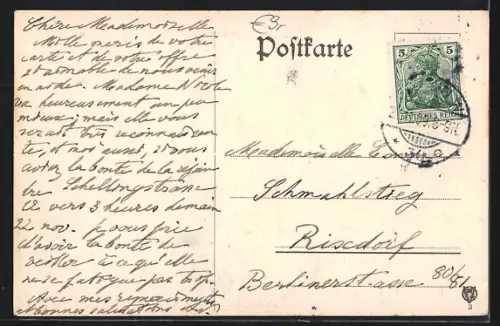 Chère Mademoiselle
Mille mercis de votre
carte et de votre offre
si aimable de nous venir
en aide. Madame
va heureusement un peu
mieux; mais elle vous
serait très reconnaissan-
te, et moi aussi, si vous
aviez la bonté de la rejoin-
dre Schellingstrasse
12 vers 3 heures demain
22 nov. Je vous prie
d'avoir la bonté de
veiller à ce qu'elle
ne se fatigue pas trop.
Avec mes remerciements
bonnes salutations
Postkarte
5 5
DEUTSCHES REICH
Mademoiselle
Schmahlstieg
Rixdorf
Berlinerstrasse 80/81
3